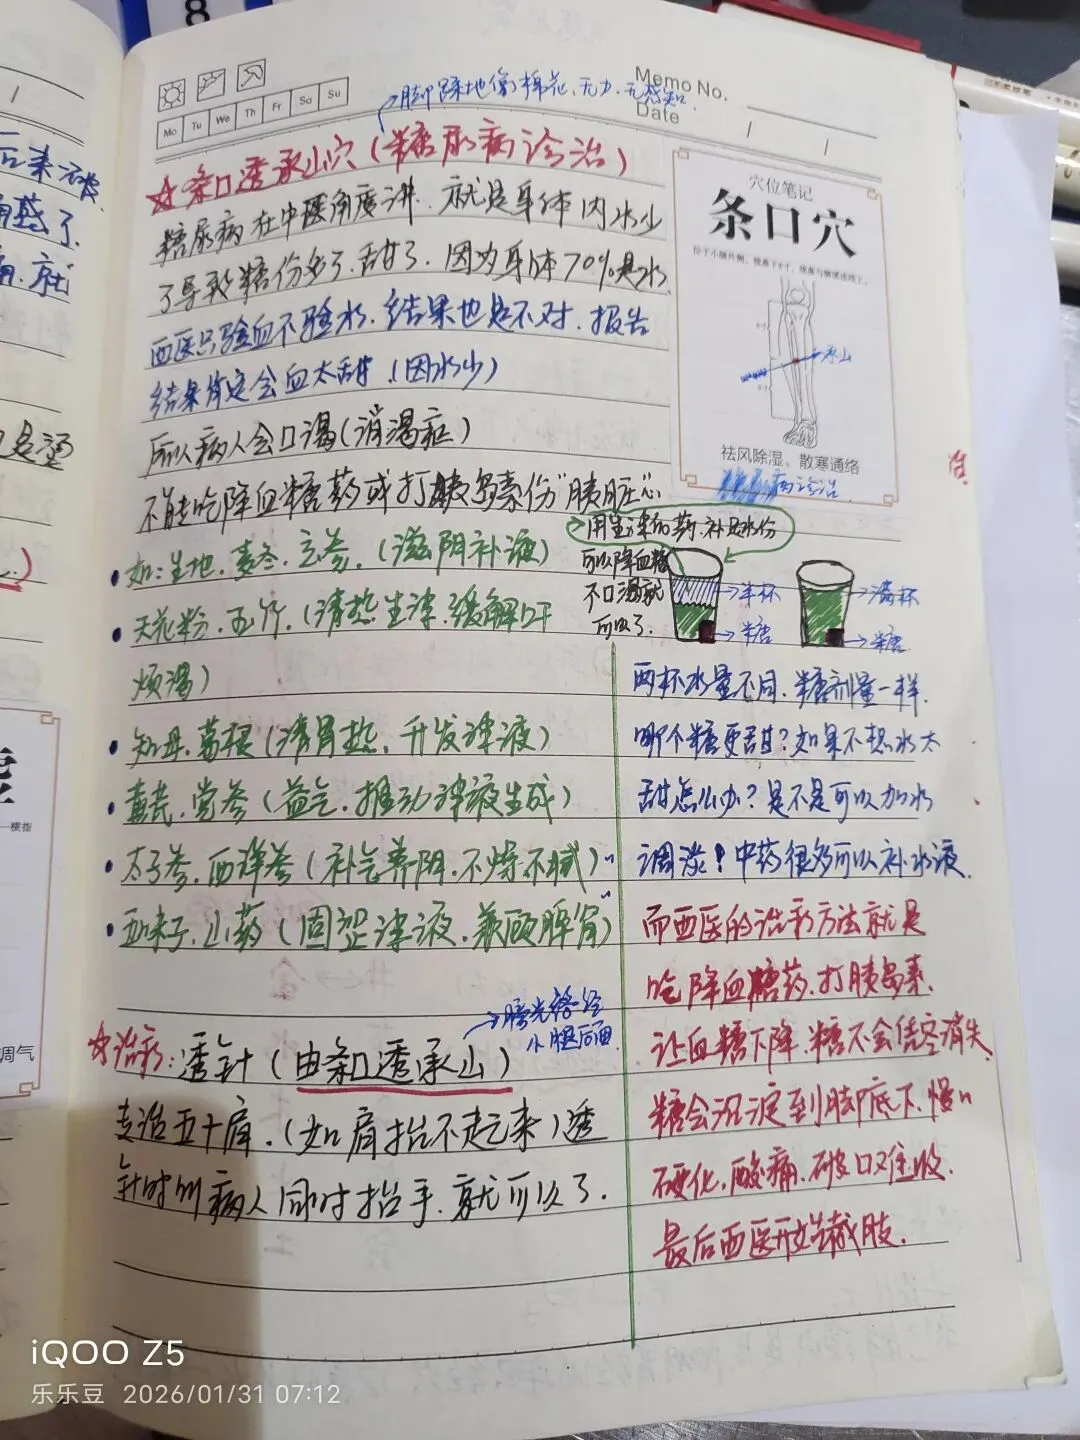 8
Memo No.
Date
Mo Tu We Th Fr Sa Su
脚踩地像棉花、无力、无感知
☆条口透承山穴(糖尿病诊治)
糖尿病在中医角度讲,就是身体内水少
了导致糖份多了,甜了.因为身体70%是水
西医只验血不验水.结果也是不对.报告
结果肯定会血太甜.(因水少)
所以病人会口渴(消渴症)
不能吃降血糖药或打胰岛素伤"胰脏心
穴位笔记
条口穴
承山
祛风除湿、散寒通络
糖尿病诊治
·如:生地.麦冬.玄参.(滋阴补液)
·天花粉.玉竹.(清热生津.缓解口干
烦渴)
·知母.葛根(清胃热,升发津液)
·黄芪.党参(益气.推动津液生成)
·太子参.西洋参(补气养阴.不燥不腻)
·五味子.山药(固涩津液.兼顾脾肾)
用生津的药.补足水份
可以降血糖
不口渴就
可以了.
半杯
糖
满杯
糖
两杯水量不同.糖剂量一样.
哪个糖更甜?如果不想水太
甜怎么办?是不是可以加水
调淡!中药很多可以补水液.
而西医的治疗方法就是
吃降血糖药.打胰岛素.
让血糖下降.糖不会凭空消失
糖会沉淀到脚底下.慢慢
硬化.酸痛.破口难收.
最后西医开始截肢.
膀光络经
小腿后面
☆治疗:透针(由条口透承山)
专治五十肩.(如肩抬不起来)透
针时叫病人同时抬手.就可以了.
一横指
调气
iQOO Z5
乐乐豆 2026/01/31 07:12